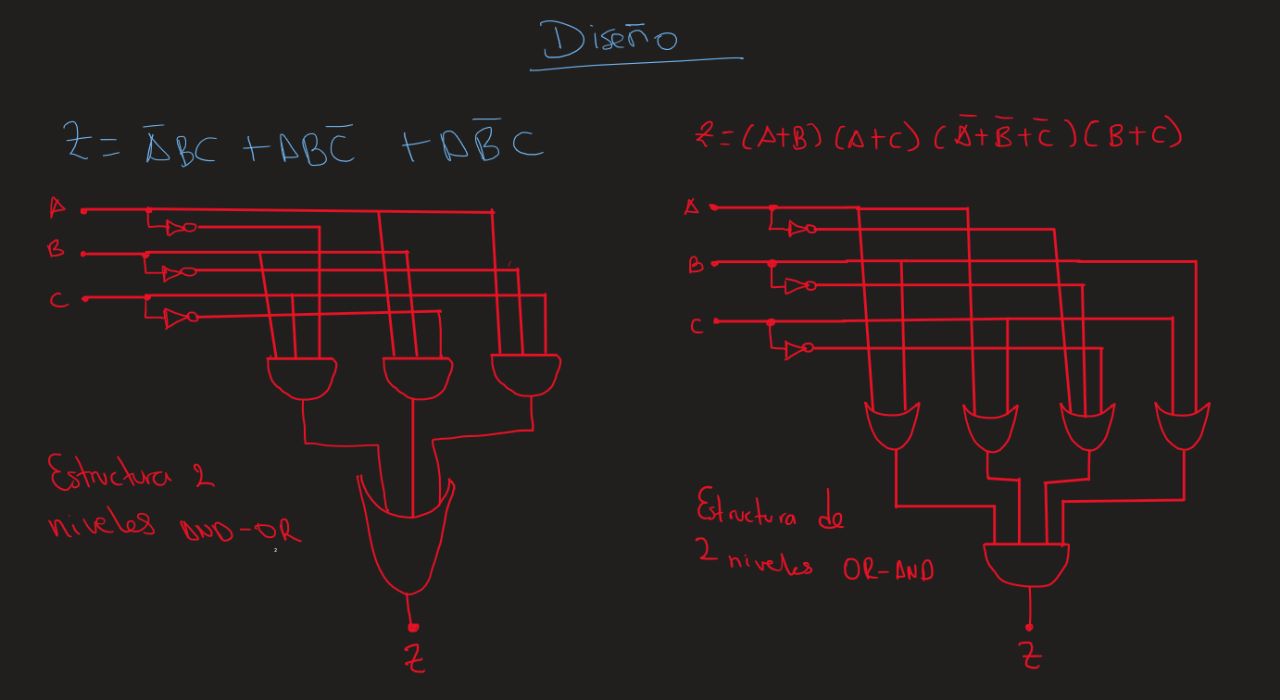 Diseño
Z = A̅BC + ABC̅ + AB̅C
A
B
C
Estructura 2
niveles AND-OR
2
Z
Z = (A+B) (A+C) (A̅+B̅+C̅) (B+C)
A
B
C
Estructura de
2 niveles OR-AND
Z